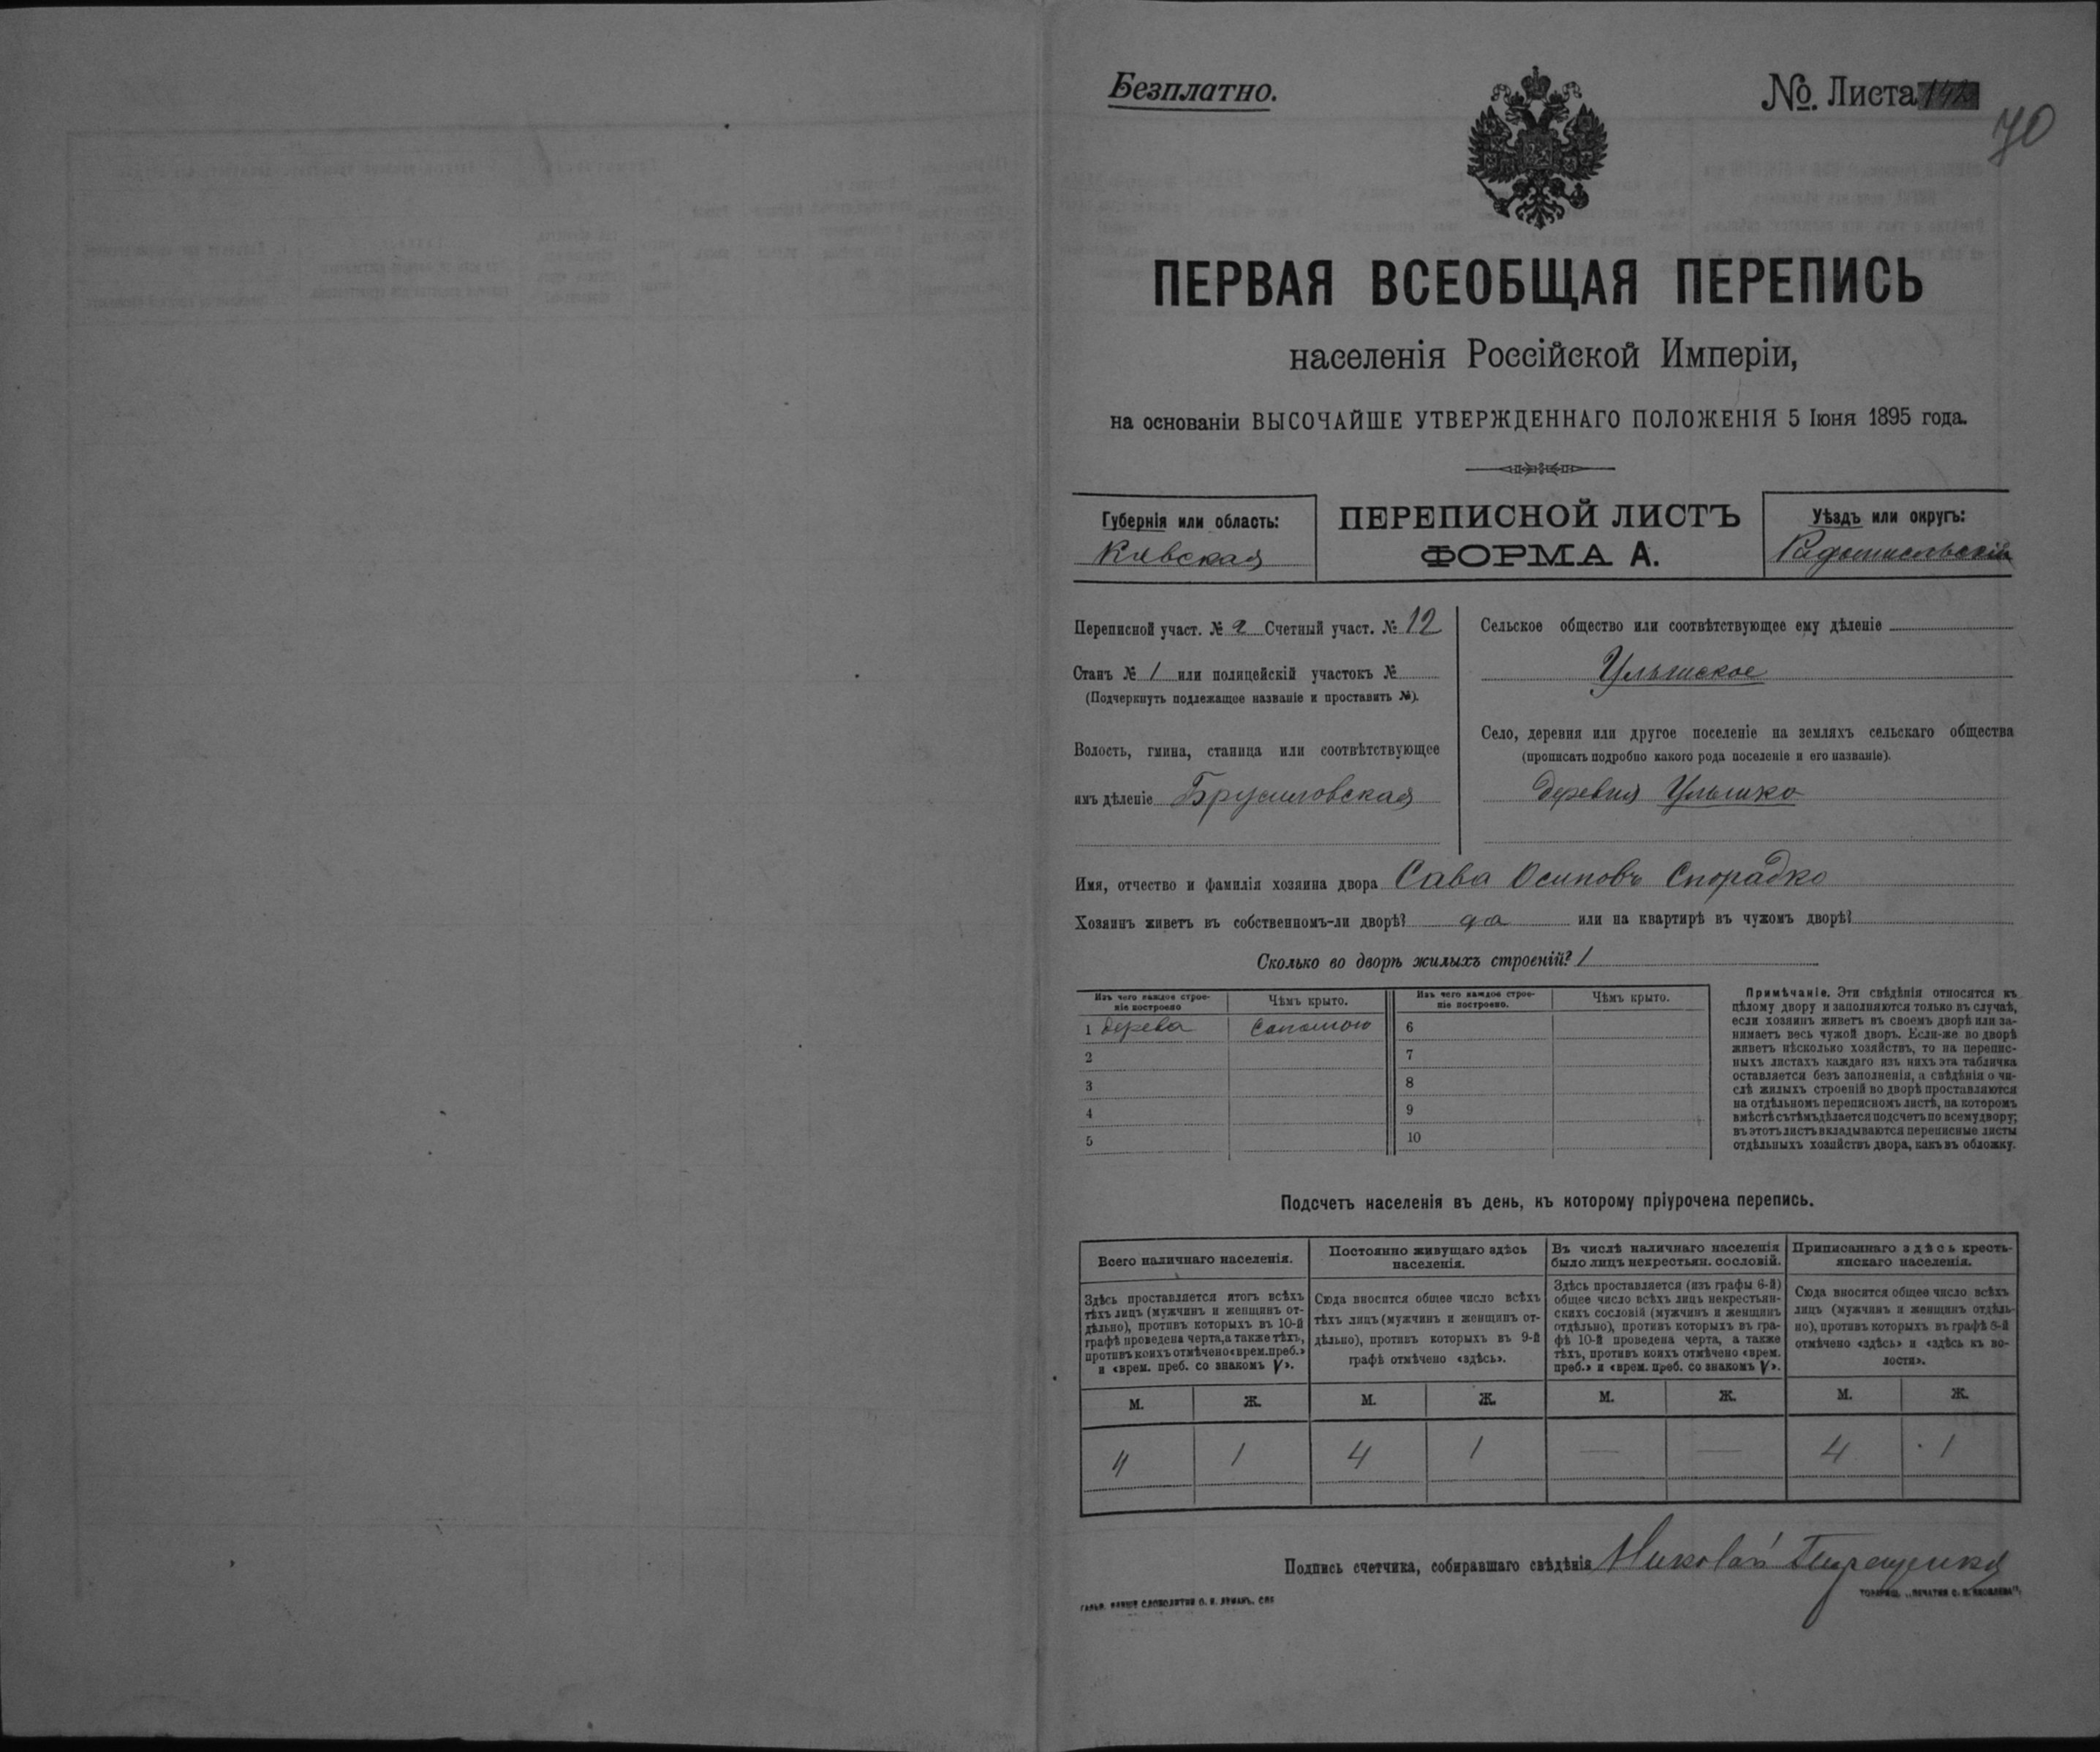 Безплатно.
№ Листа
70
ПЕРВАЯ ВСЕОБЩАЯ ПЕРЕПИСЬ
населенія Россійской Имперіи,
на основаніи ВЫСОЧАЙШЕ УТВЕРЖДЕННАГО ПОЛОЖЕНІЯ 5 Іюня 1895 года.
Губернія или область:
Киевская
ПЕРЕПИСНОЙ ЛИСТЪ
ФОРМА А.
Уѣздъ или округъ:
Радомысльскій
Переписной участ. № 2 Счетный участ. № 12
Станъ № 1 или полицейскій участокъ №
(Подчеркнуть подлежащее названіе и проставить №).
Волость, гмина, станица или соотвѣтствующее
имъ дѣленіе Брусиловская
Сельское общество или соотвѣтствующее ему дѣленіе
Село, деревня или другое поселеніе на земляхъ сельскаго общества
(прописать подробно какого рода поселеніе и его названіе).
деревня
Имя, отчество и фамилія хозяина двора Сава Осиповъ Спорадко
Хозяинъ живетъ въ собственномъ-ли дворѣ? да или на квартирѣ въ чужомъ дворѣ?
Сколько во дворѣ жилыхъ строеній? 1
Изъ чего каждое строе-
ніе построено
Чѣмъ крыто.
Изъ чего каждое строе-
ніе построено.
Чѣмъ крыто.
1 дерева соломою 6
2 7
3 8
4 9
5 10
Примѣчаніе. Эти свѣдѣнія относятся къ
цѣлому двору и заполняются только въ случаѣ,
если хозяинъ живетъ въ своемъ дворѣ или за-
нимаетъ весь чужой дворъ. Если-же во дворѣ
живетъ нѣсколько хозяйствъ, то на перепис-
ныхъ листахъ каждаго изъ нихъ эта табличка
оставляется безъ заполненія, а свѣдѣнія о чи-
слѣ жилыхъ строеній во дворѣ проставляются
на отдѣльномъ переписномъ листѣ, на которомъ
вмѣстѣ съ тѣмъ дѣлается подсчетъ по всему двору;
въ этотъ листъ вкладываются переписные листы
отдѣльныхъ хозяйствъ двора, какъ въ обложку.
Подсчетъ населенія въ день, къ которому пріурочена перепись.
Всего наличнаго населенія.
Здѣсь проставляется итогъ всѣхъ
тѣхъ лицъ (мужчинъ и женщинъ от-
дѣльно), противъ которыхъ въ 10-й
графѣ проведена черта, а также тѣхъ,
противъ коихъ отмѣчено «врем. преб.»
и «врем. преб. со знакомъ V».
Постоянно живущаго здѣсь
населенія.
Сюда вносится общее число всѣхъ
тѣхъ лицъ (мужчинъ и женщинъ от-
дѣльно), противъ которыхъ въ 9-й
графѣ отмѣчено «здѣсь».
Въ числѣ наличнаго населенія
было лицъ некрестьян. сословій.
Здѣсь проставляется (изъ графы 6-й)
общее число всѣхъ лицъ некрестьян-
скихъ сословій (мужчинъ и женщинъ
отдѣльно), противъ которыхъ въ гра-
фѣ 10-й проведена черта, а также
тѣхъ, противъ коихъ отмѣчено «врем.
преб.» и «врем. преб. со знакомъ V».
Приписаннаго здѣсь кресть-
янскаго населенія.
Сюда вносится общее число всѣхъ
лицъ (мужчинъ и женщинъ отдѣль-
но), противъ которыхъ въ графѣ 8-й
отмѣчено «здѣсь» и «здѣсь къ во-
лости».
М. Ж. М. Ж. М. Ж. М. Ж.
4 1 4 1 — — 4 1
Подпись счетчика, собиравшаго свѣдѣнія Николай